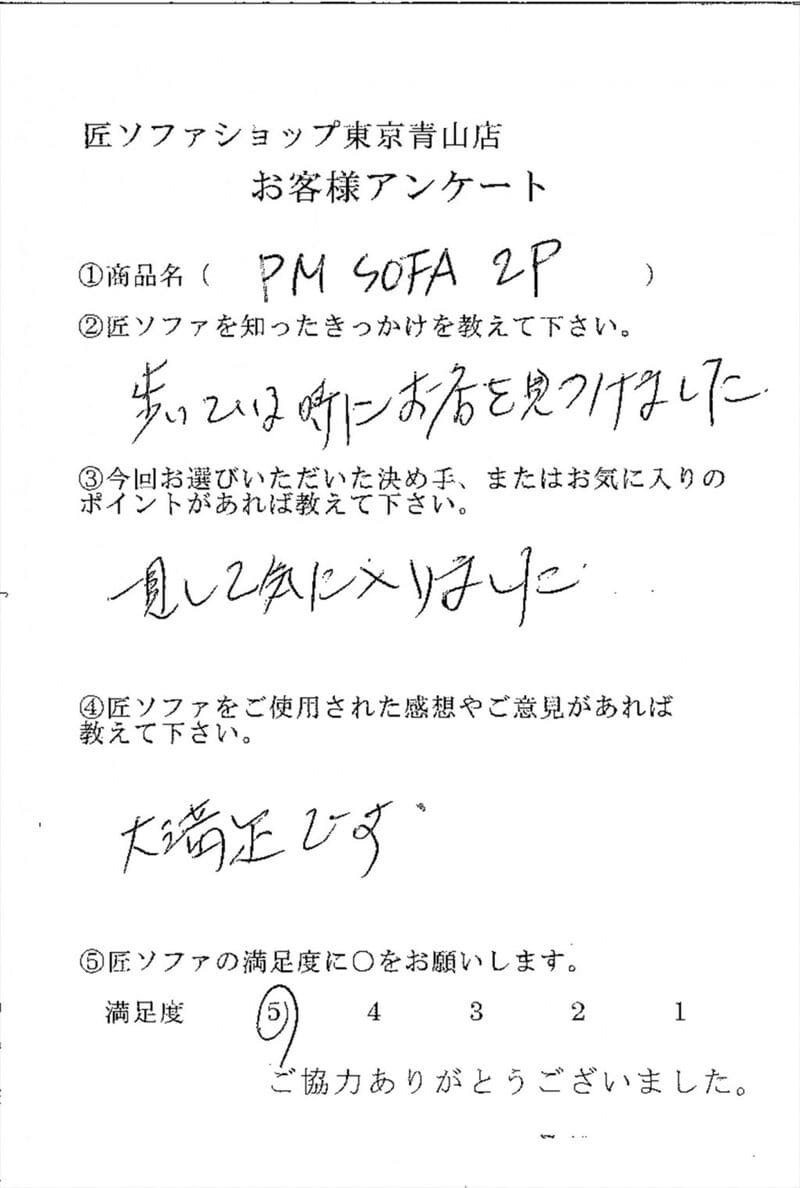 匠ソファショップ東京青山店
お客様アンケート
①商品名（ PM SOFA 2P ）
②匠ソファを知ったきっかけを教えて下さい。
歩いている時にお店を見つけました
③今回お選びいただいた決め手、またはお気に入りの
ポイントがあれば教えて下さい。
一見して気に入りました
④匠ソファをご使用された感想やご意見があれば
教えて下さい。
大満足です
⑤匠ソファの満足度に○をお願いします。
満足度 5 4 3 2 1
ご協力ありがとうございました。